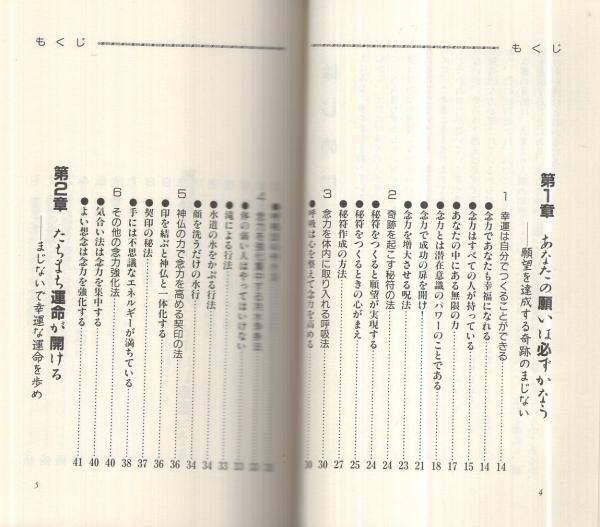 もくじ
第1章 あなたの願いは必ずかなう
──願望を達成する奇跡のまじない
1 幸運は自分でつくることができる 14
●念力であなたも幸福になれる 14
●念力はすべての人が持っている 15
●あなたの中にある無限の力 17
●念力とは潜在意識のパワーのことである 18
●念力で成功の扉を開け! 21
●念力を増大させる呪法 23
2 奇跡を起こす秘符の法 24
●秘符をつくると願望が実現する 24
●秘符をつくるときの心がまえ 25
●秘符作成の方法 27
3 念力を体内に取り入れる呼吸法 30
●呼吸は心を整えて念力を高める 30
4
もくじ
4 念力を
●体の弱い人はやってはいけない 33
●滝による行法 33
●水道の水をかぶる行法 34
●顔を洗うだけの水行 34
5 神仏の力で念力を高める契印の法 36
●印を結ぶと神仏と一体化する 36
●契印の秘法 37
●手には不思議なエネルギーが満ちている 38
6 その他の念力強化法 40
●気合い法は念力を集中する 40
●よい想念は念力を強化する 41
第2章 たちまち運命が開ける
──まじないで幸運な運命を歩め
5